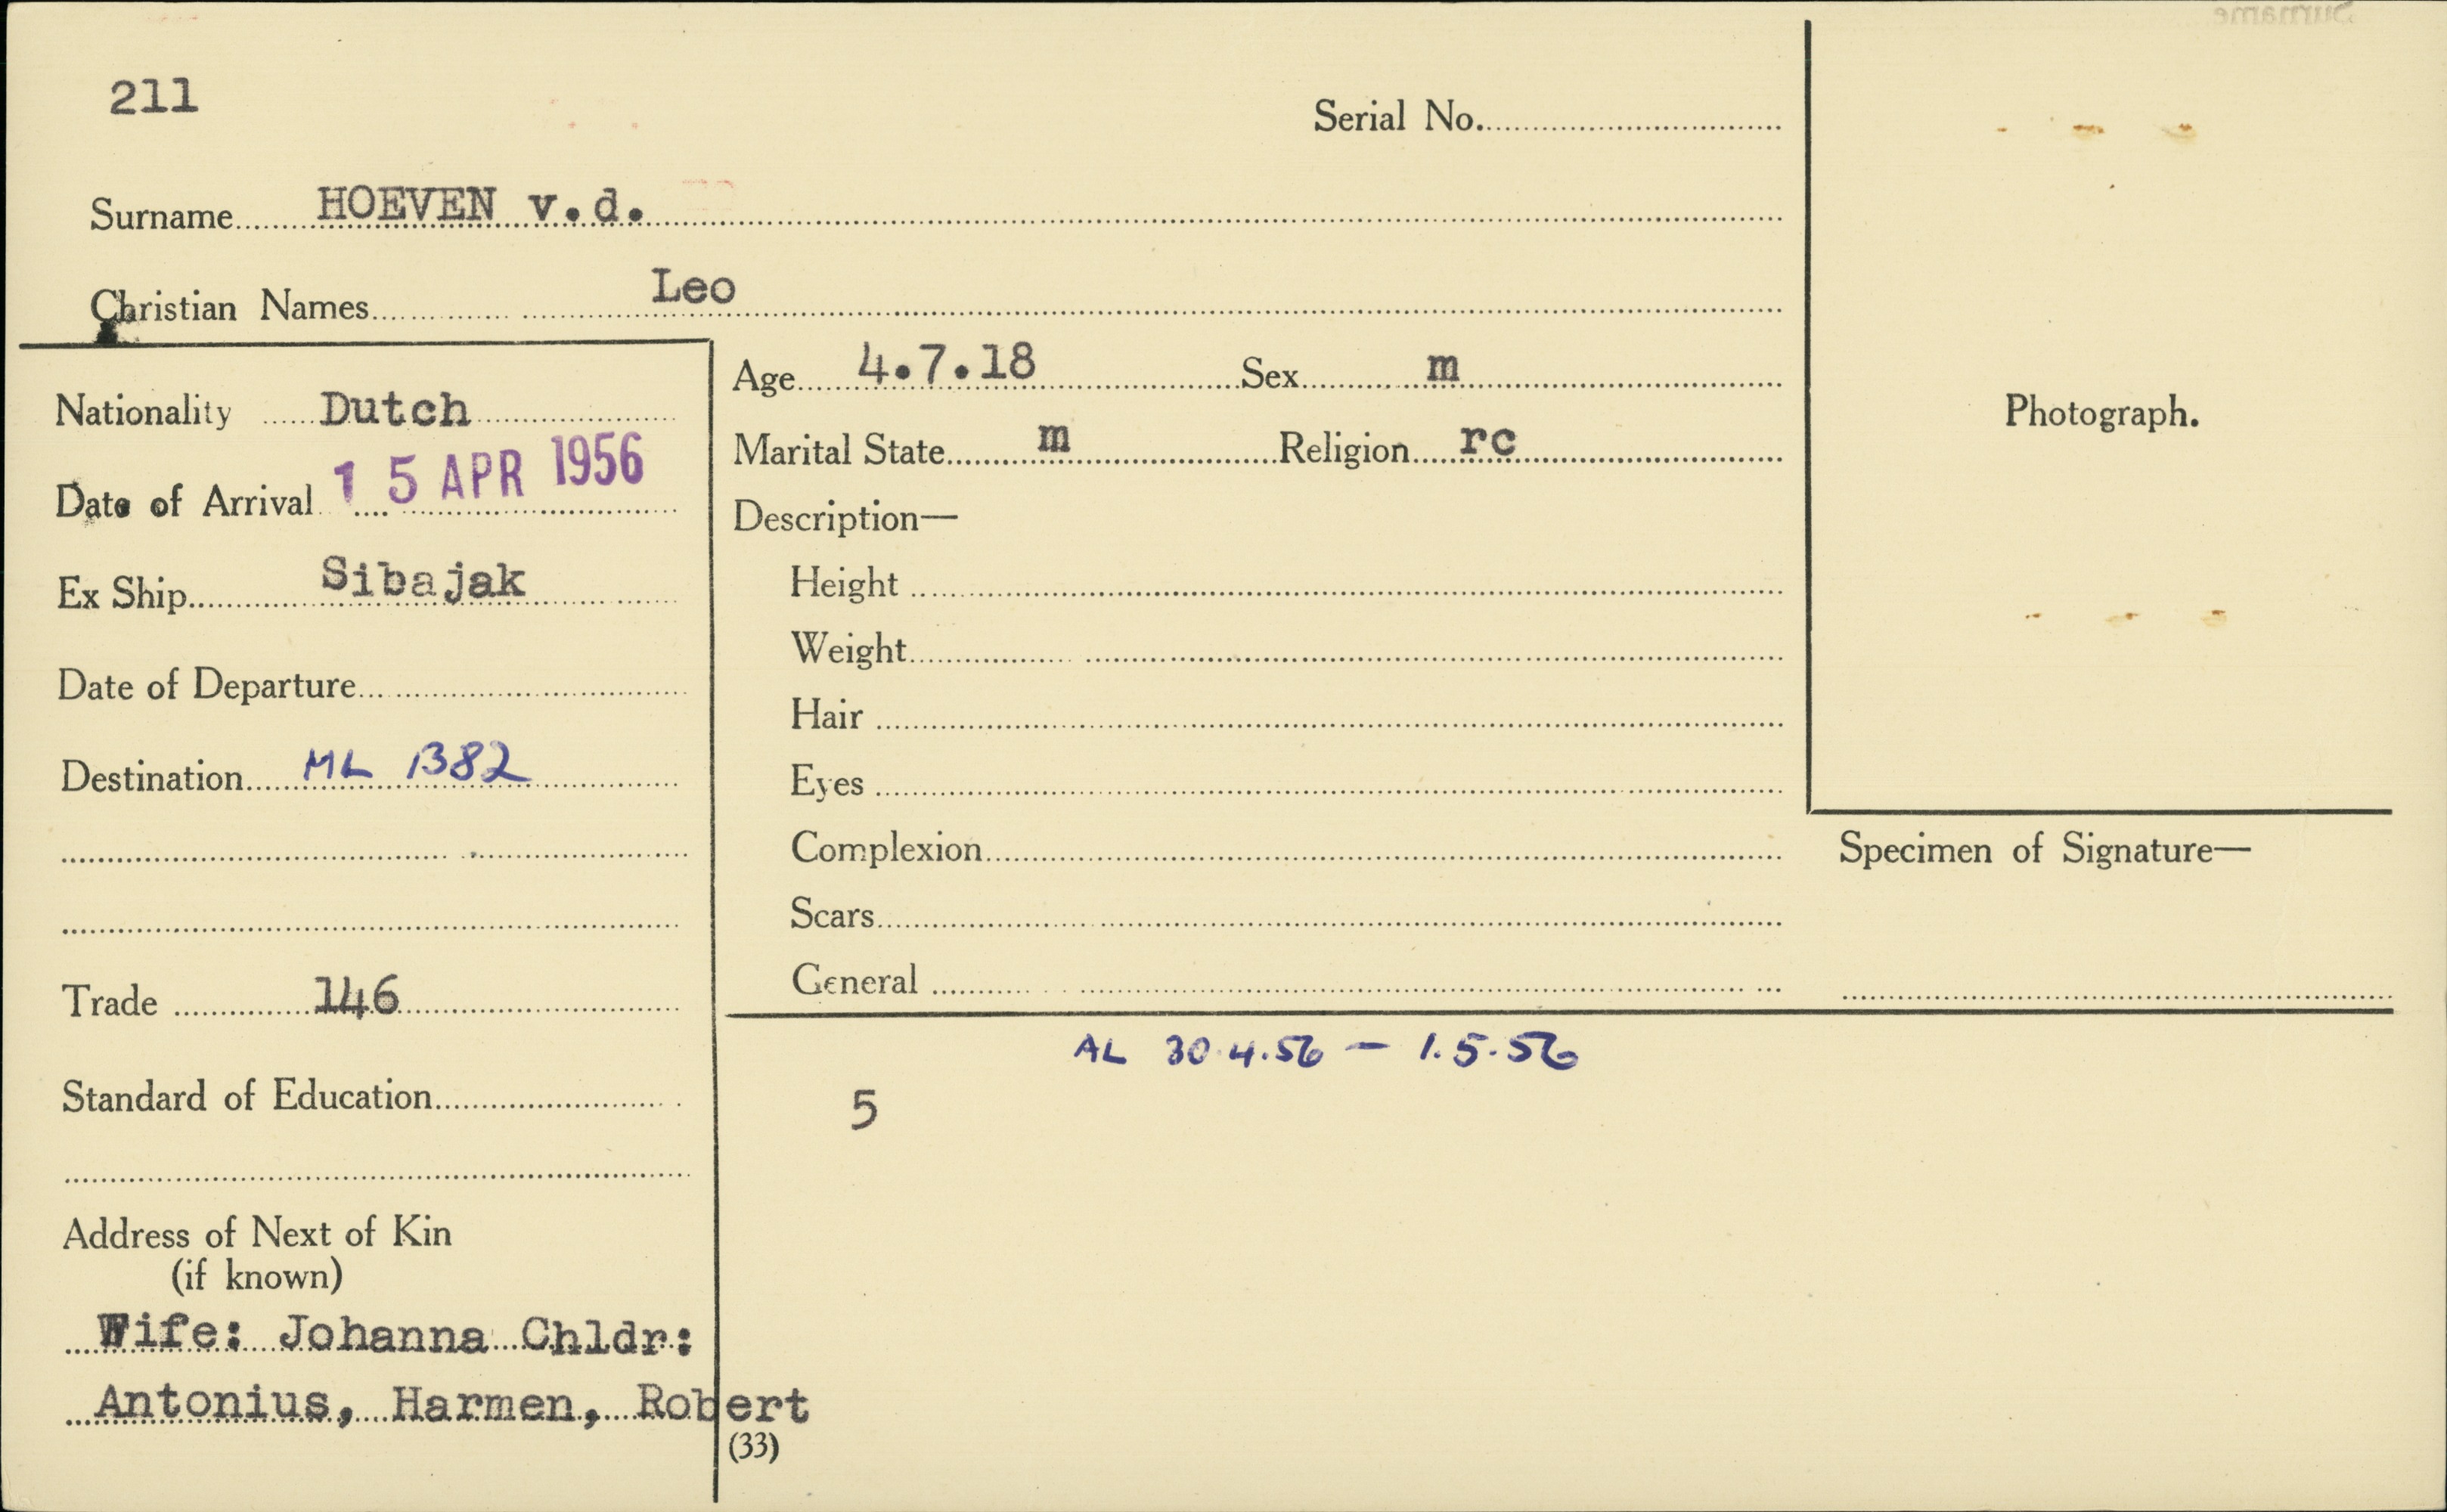 211
Serial No.
Surname HOEVEN v.d.
Christian Names Leo
Nationality Dutch
Date of Arrival 15 APR 1956
Ex Ship Sibajak
Date of Departure
Destination ML 1382
Trade 146
Standard of Education
Address of Next of Kin
(if known)
Wife: Johanna Chldr:
Antonius, Harmen, Robert
(33)
Age 4.7.18 Sex m
Marital State m Religion rc
Description—
Height
Weight
Hair
Eyes
Complexion
Scars
General
AL 30.4.56 — 1.5.56
5
Photograph.
Specimen of Signature—
Surname